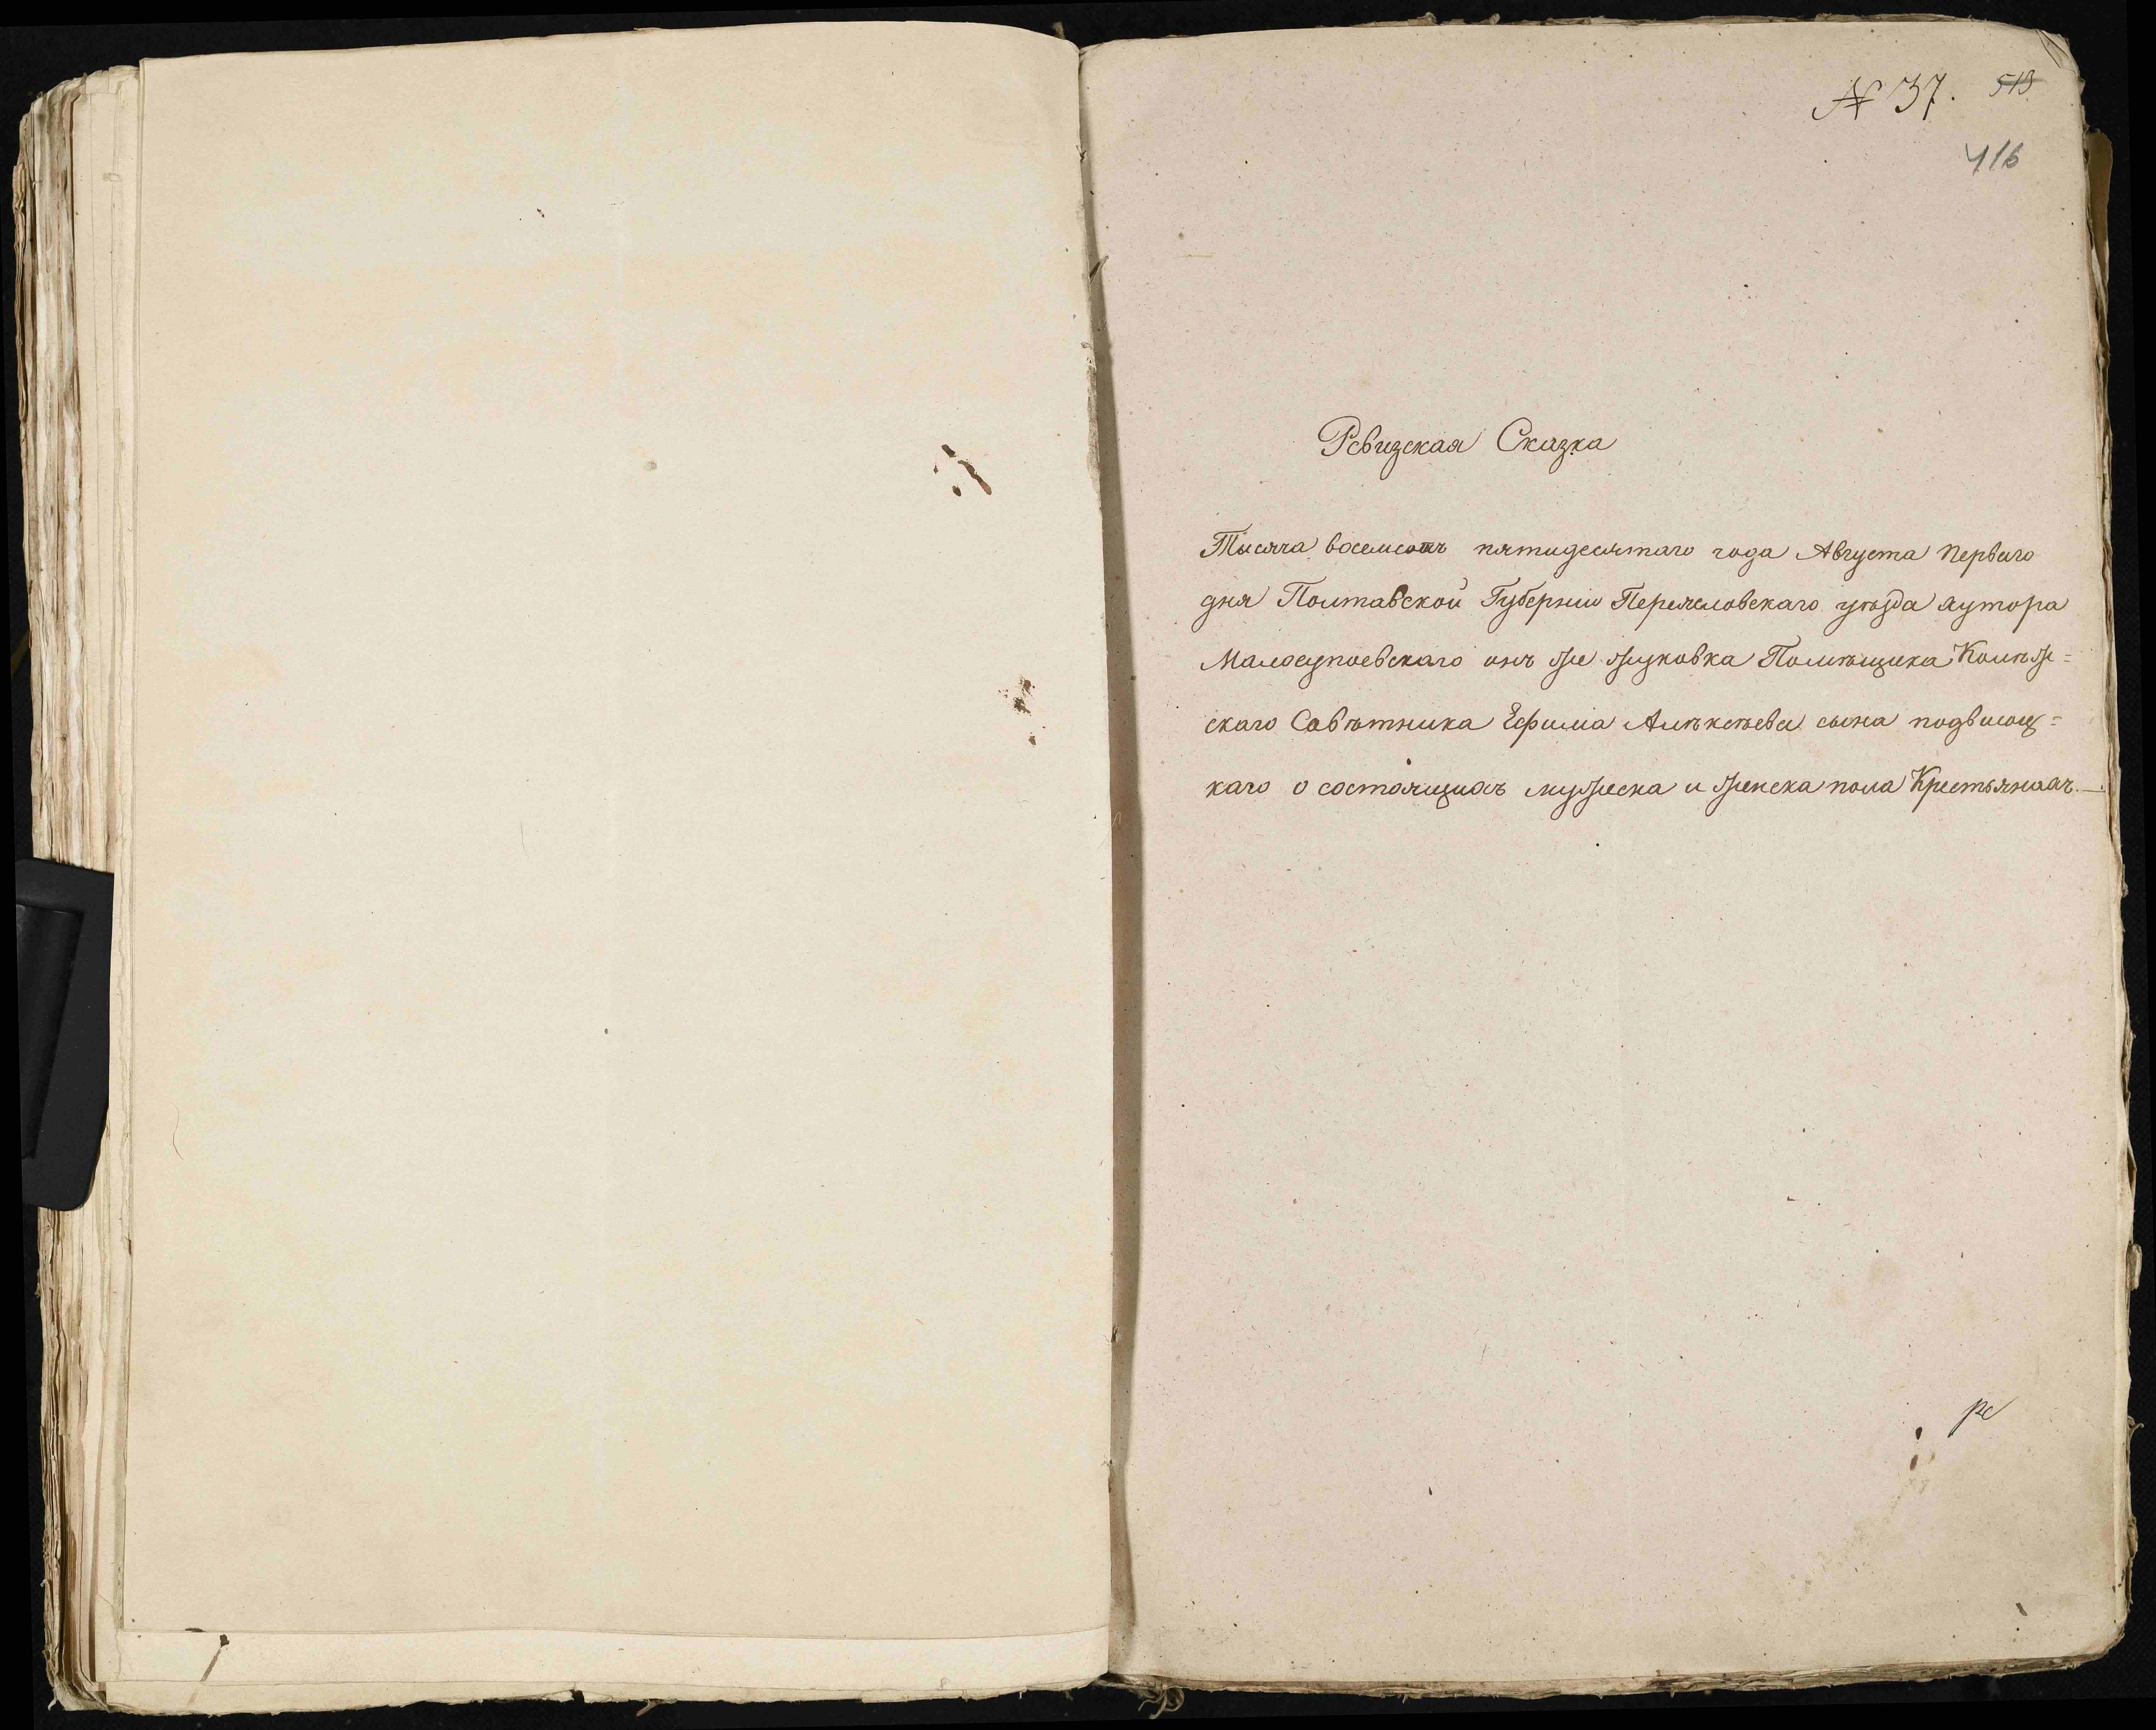 № 37. 513
416
Ревизская Сказка
Тысяча восемсотъ пятидесятаго года Августа перваго
дня Полтавской Губернии Переясловскаго уѣзда хутора
Малосупоевскаго онъ же жуковка Помѣщика Колѣж=
скаго Совѣтника Ефима Алѣксѣева сына подвысоц=
каго о состоящихъ мужеска и женска пола Крестьянахъ. —
ре